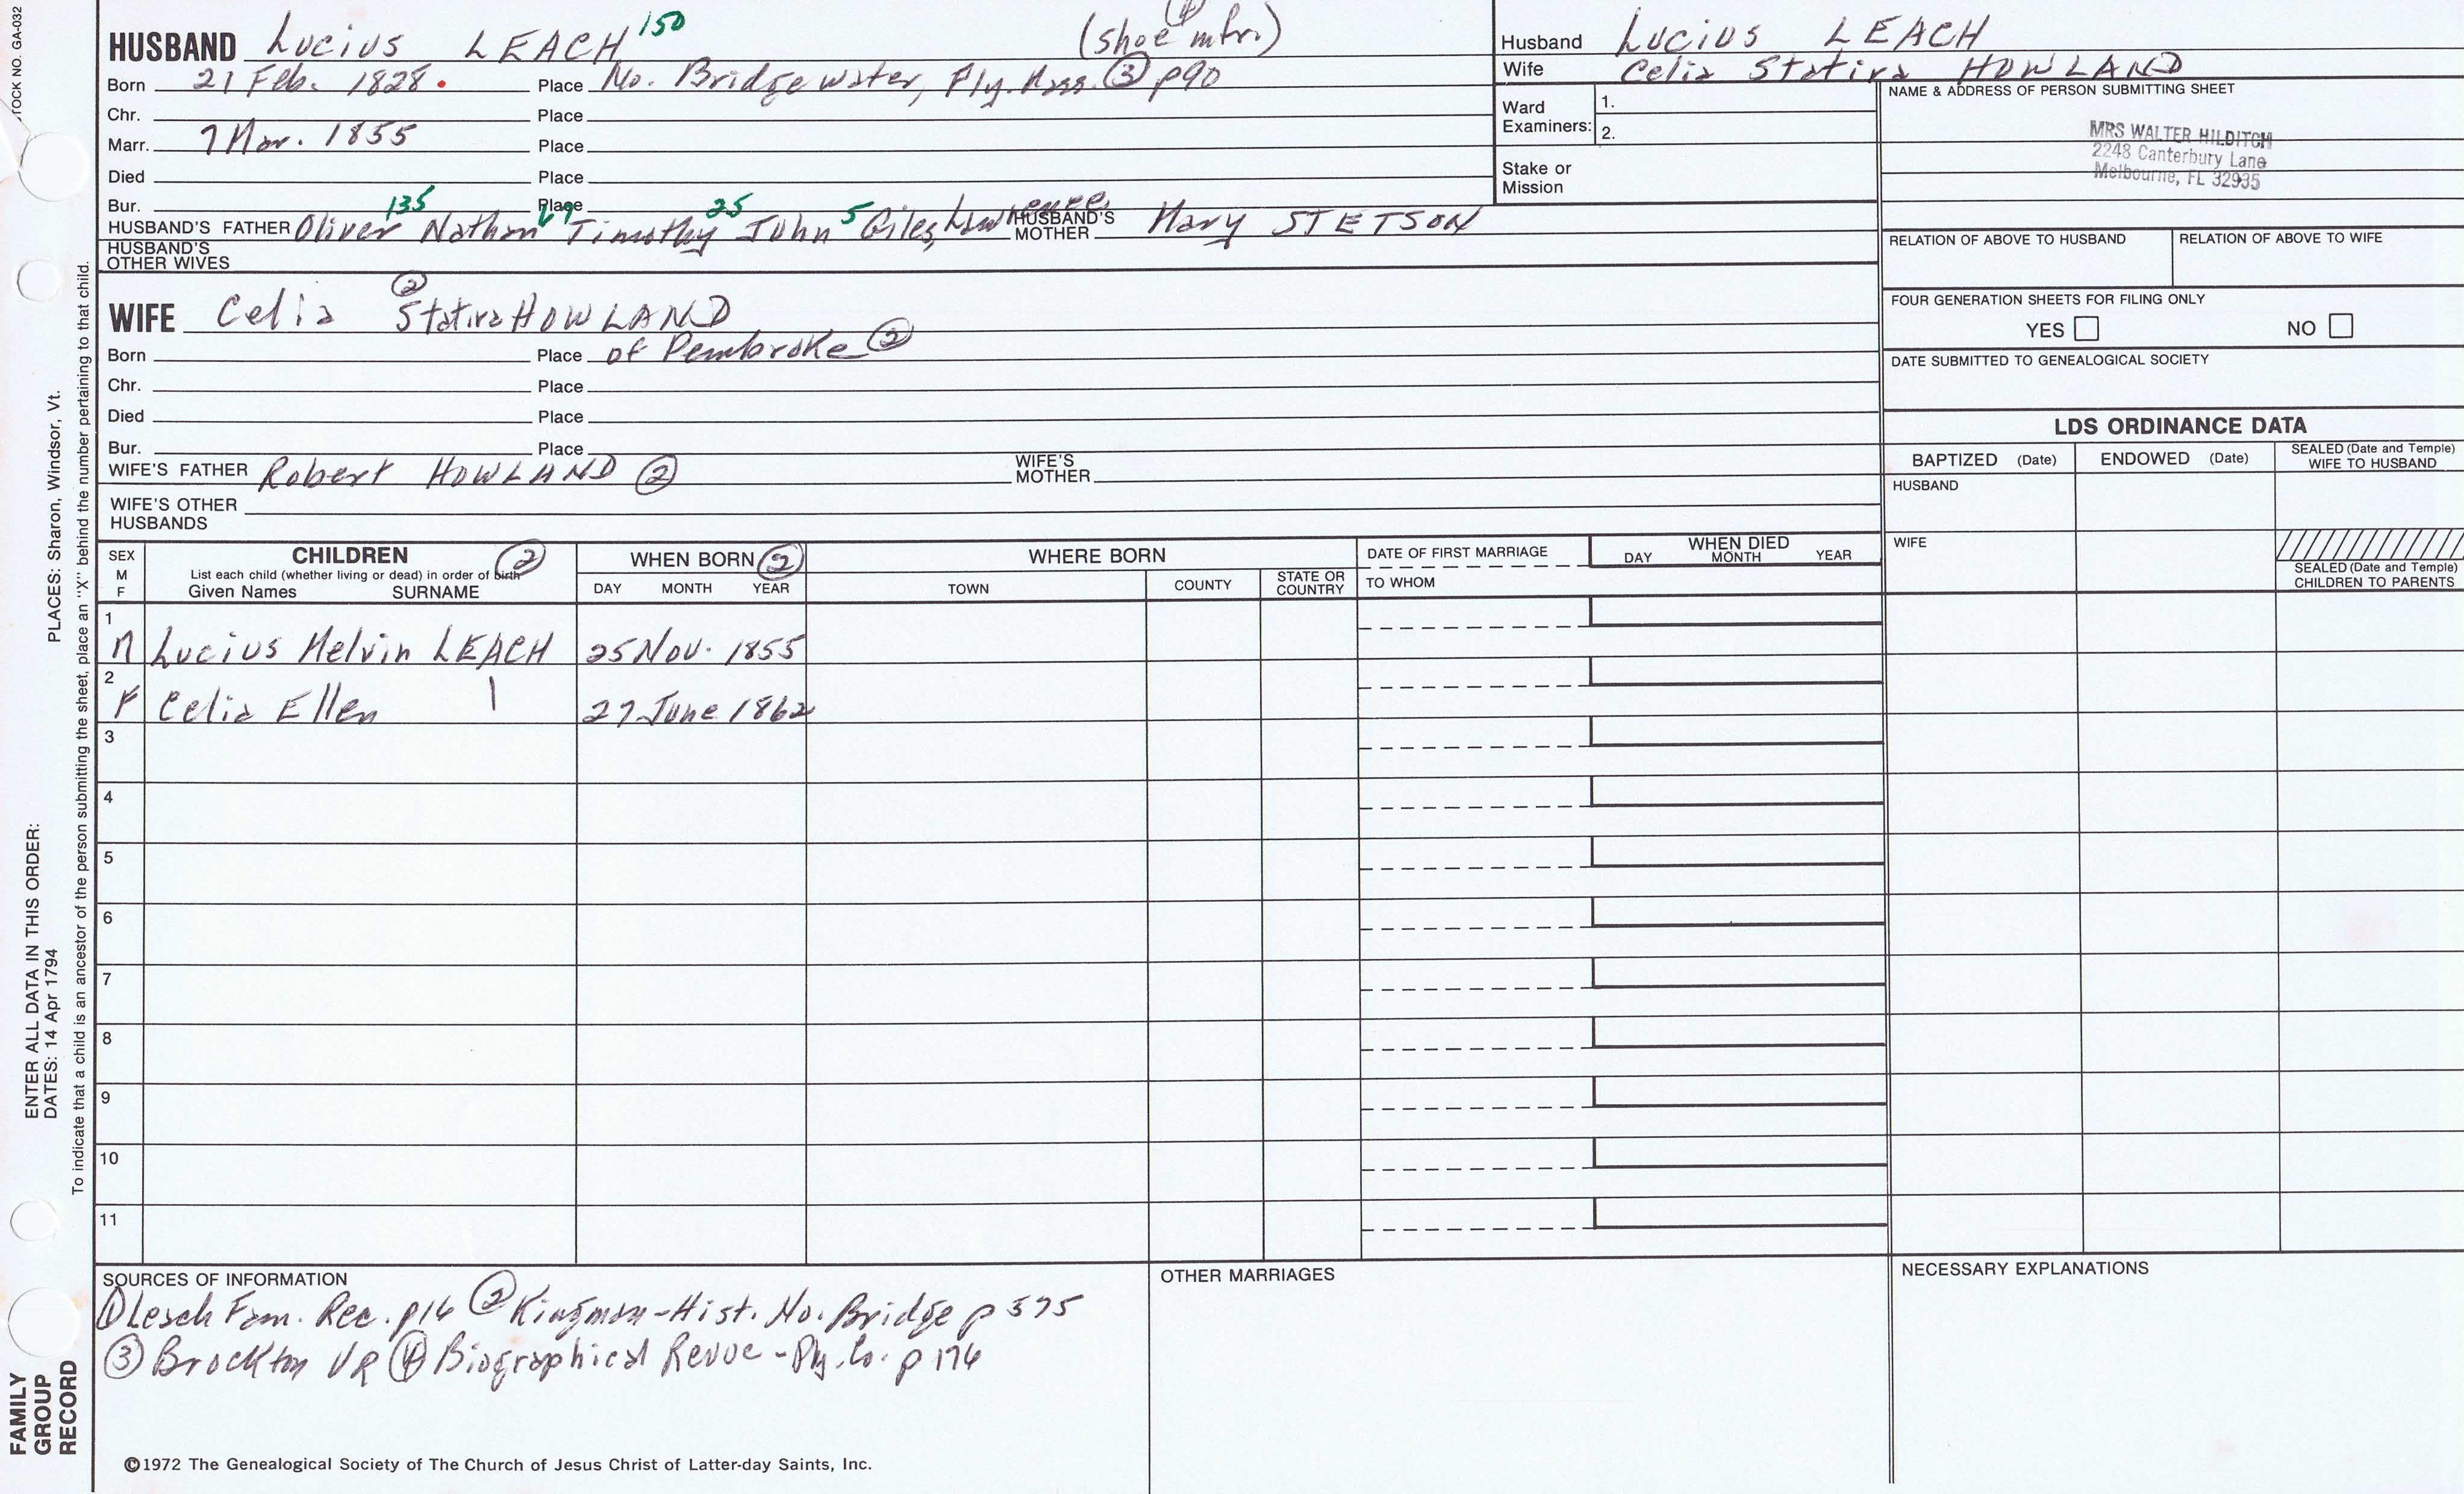 STOCK NO. GA-032
HUSBAND Lucius LEACH 150 (shoe mfr.) ④
Born 21 Feb. 1828. Place No. Bridgewater, Ply. Mass. ③ p90
Chr. Place
Marr. 7 Mar. 1855 Place
Died Place
Bur. Place
HUSBAND'S FATHER Oliver 135 Nathan 69 Timothy 25 John 5 Giles, Lawrence HUSBAND'S MOTHER Mary STETSON
HUSBAND'S OTHER WIVES
WIFE Celia Statira ② HOWLAND
Born Place of Pembroke ②
Chr. Place
Died Place
Bur. Place
WIFE'S FATHER Robert HOWLAND ② WIFE'S MOTHER
WIFE'S OTHER HUSBANDS
Husband Lucius LEACH
Wife Celia Statira HOWLAND
Ward Examiners: 1.
2.
Stake or Mission
NAME & ADDRESS OF PERSON SUBMITTING SHEET
MRS WALTER HILDITCH
2248 Canterbury Lane
Melbourne, FL 32935
RELATION OF ABOVE TO HUSBAND RELATION OF ABOVE TO WIFE
FOUR GENERATION SHEETS FOR FILING ONLY
YES NO
DATE SUBMITTED TO GENEALOGICAL SOCIETY
LDS ORDINANCE DATA
BAPTIZED (Date) ENDOWED (Date) SEALED (Date and Temple) WIFE TO HUSBAND
HUSBAND
WIFE
SEALED (Date and Temple) CHILDREN TO PARENTS
SEX M F
CHILDREN ②
List each child (whether living or dead) in order of birth
Given Names SURNAME
WHEN BORN ②
DAY MONTH YEAR
WHERE BORN
TOWN COUNTY STATE OR COUNTRY
DATE OF FIRST MARRIAGE
TO WHOM
WHEN DIED
DAY MONTH YEAR
1 M Lucius Melvin LEACH 25 Nov. 1855
2 F Celia Ellen | 27 June 1862
3
4
5
6
7
8
9
10
11
SOURCES OF INFORMATION
① Leach Fam. Rec. p16 ② Kingman-Hist. No. Bridge p 575
③ Brockton VR ④ Biographical Revue-Ply. Co. p 176
OTHER MARRIAGES
NECESSARY EXPLANATIONS
©1972 The Genealogical Society of The Church of Jesus Christ of Latter-day Saints, Inc.
FAMILY GROUP RECORD
ENTER ALL DATA IN THIS ORDER:
DATES: 14 Apr 1794 PLACES: Sharon, Windsor, Vt.
To indicate that a child is an ancestor of the person submitting the sheet, place an "X" behind the number pertaining to that child.